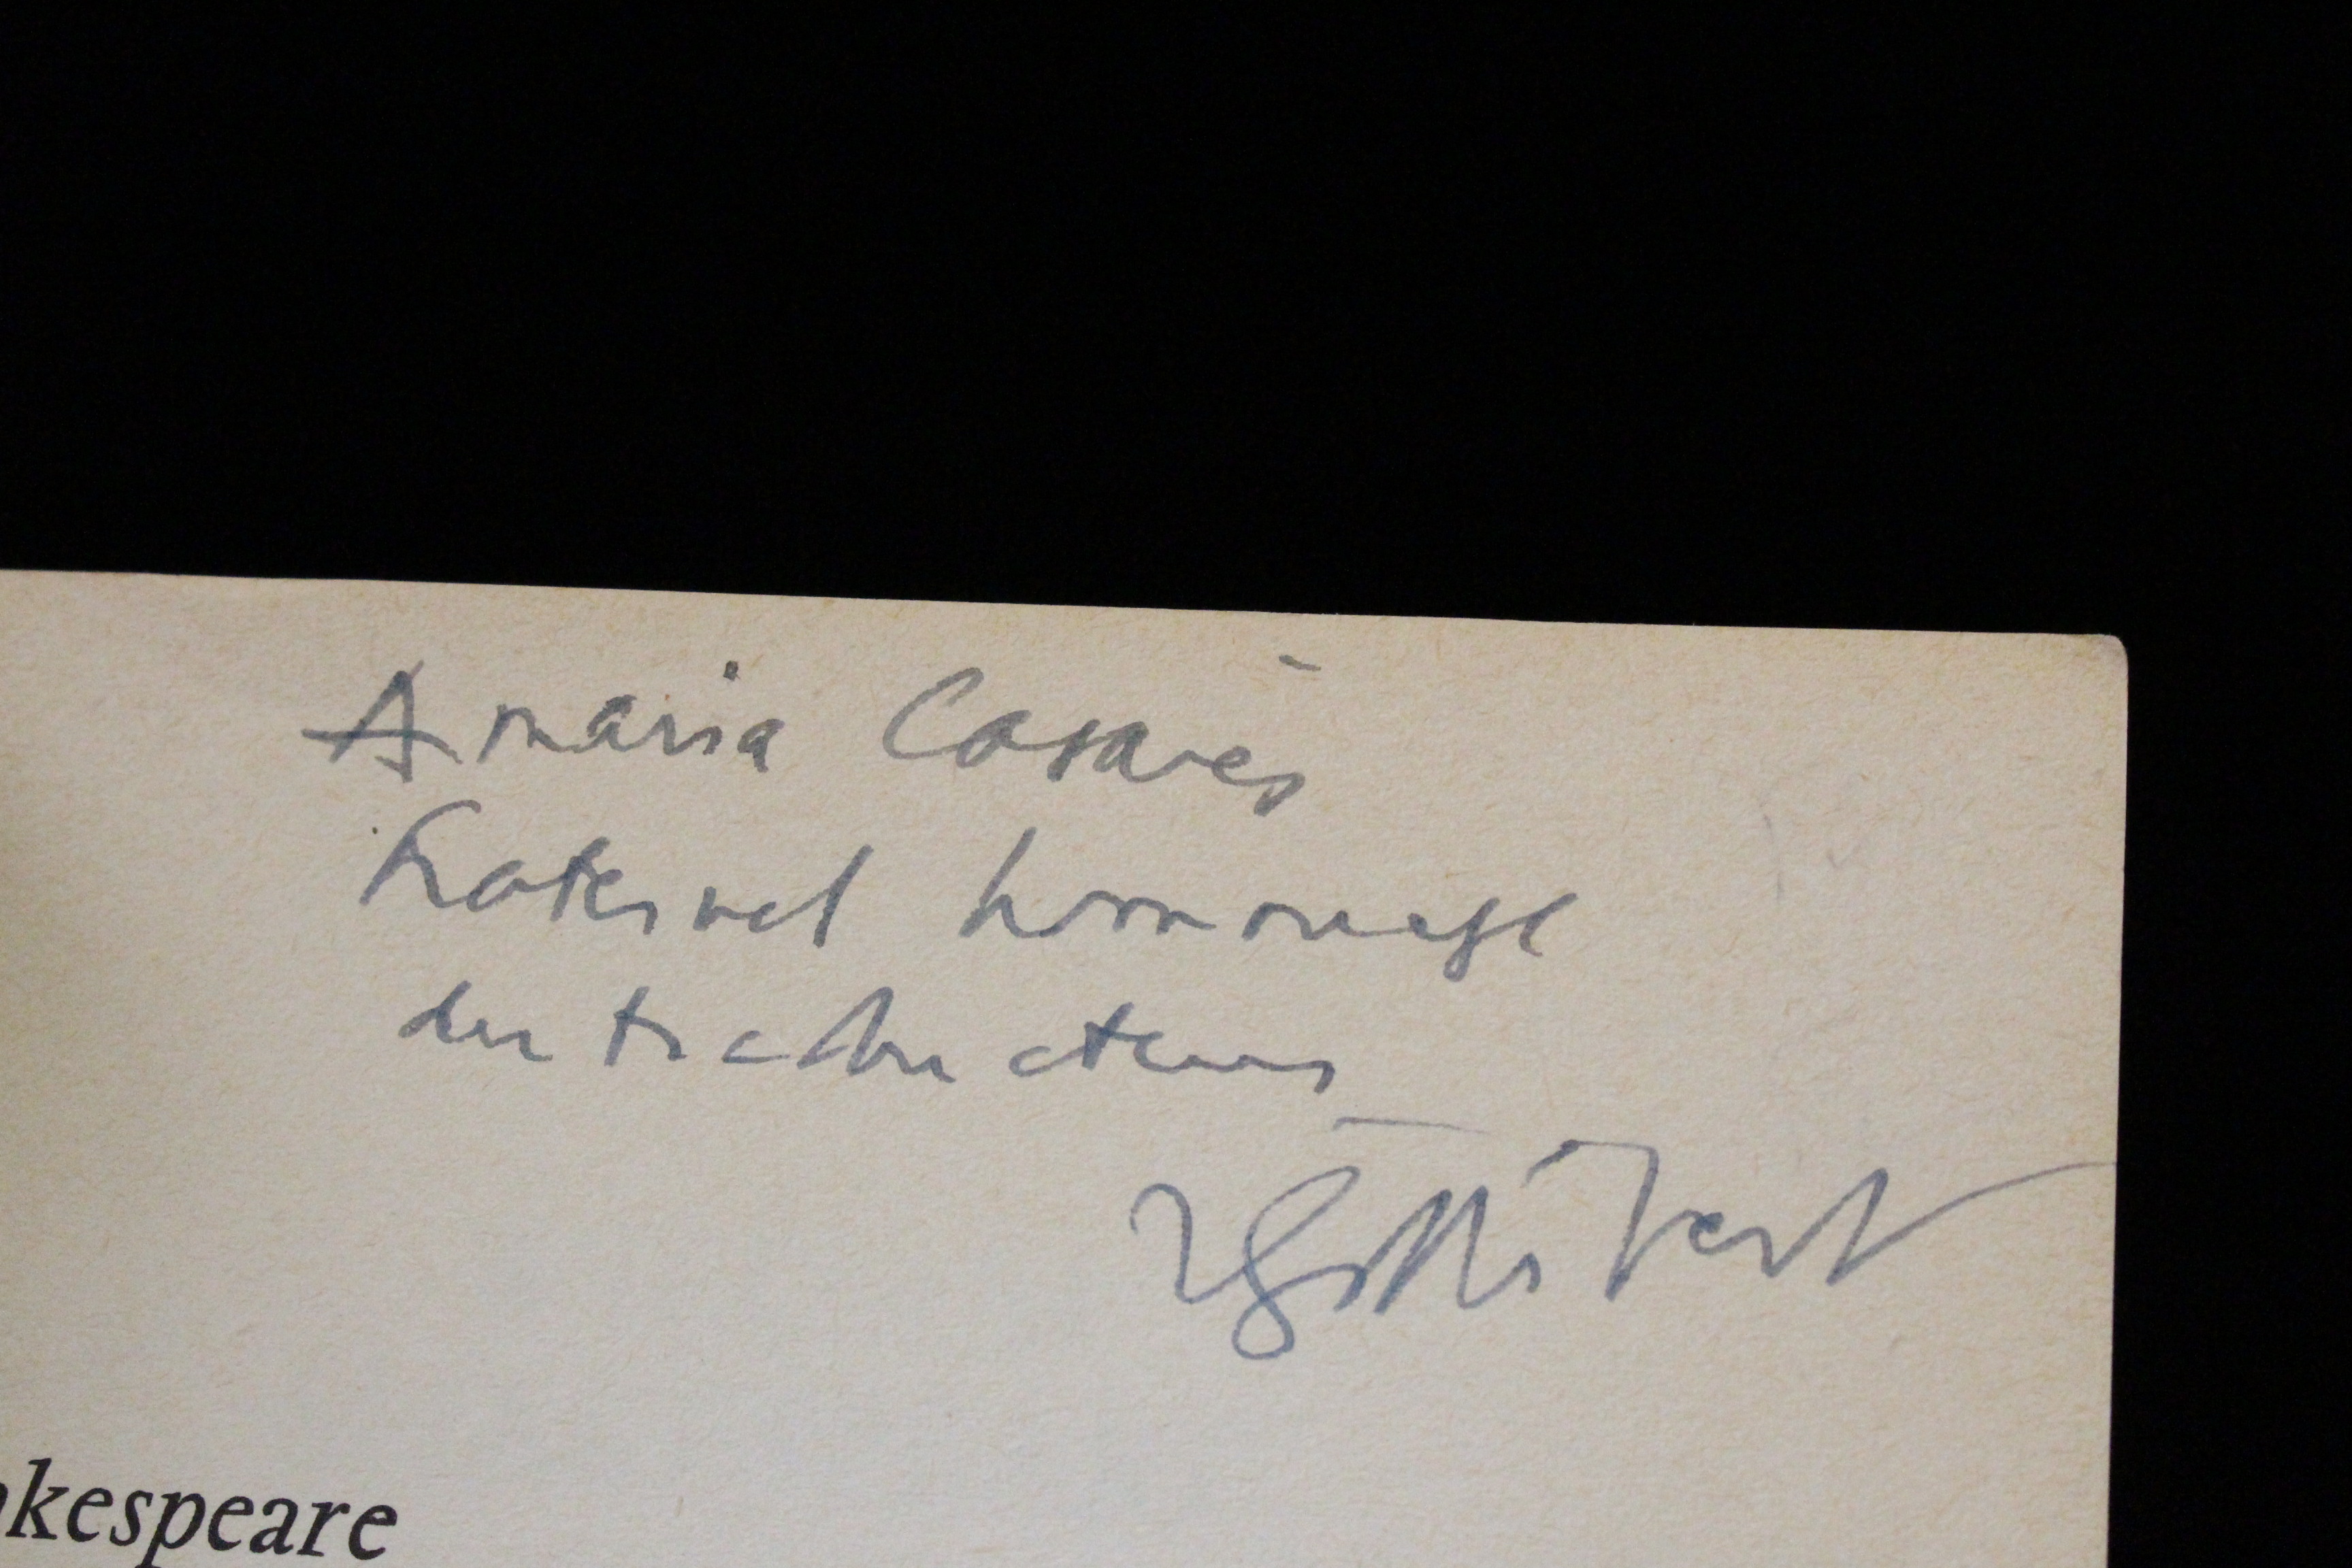 A maria Casarès
fraternel hommage
du traducteur
akespeare